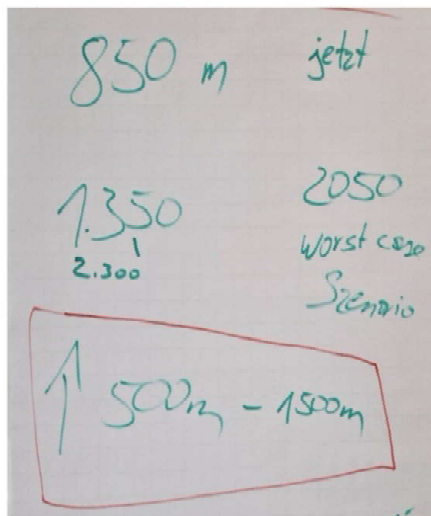 850 m jetzt
1.350 2050
2.300 worst case
Szenario
↑ 500m - 1500m